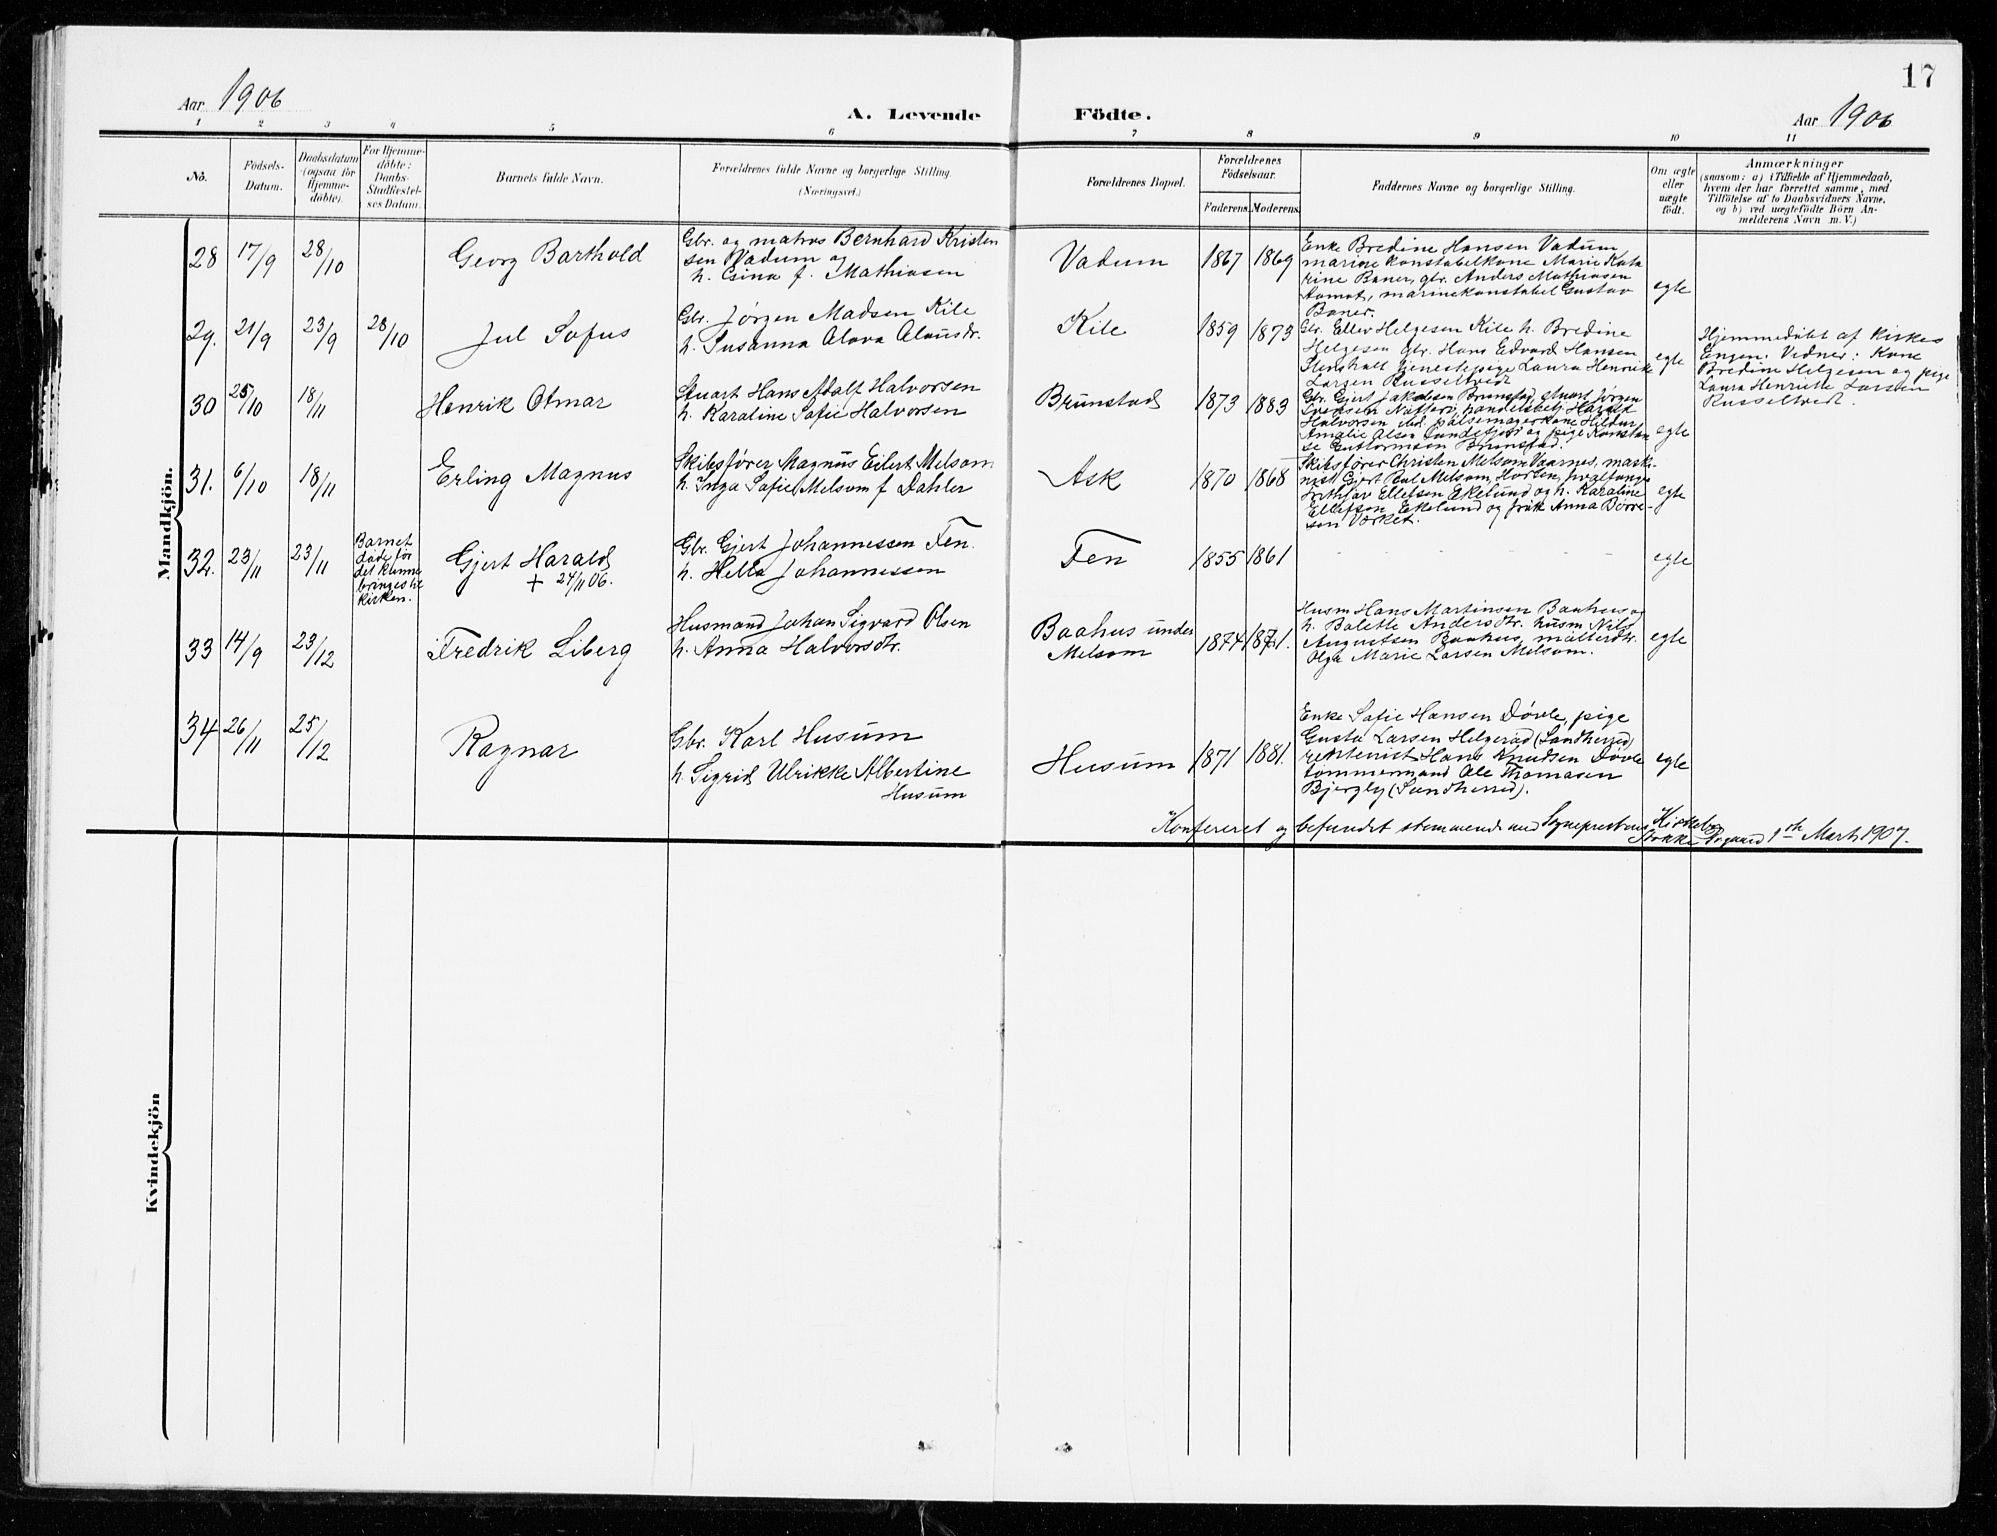 17
Aar 1906
A. Levende Födte.
Aar 1906
1 2 3 4 5 6 7 8 9 10 11
No.
Födsels-
Datum.
Daabsdatum
(ogsaa for
Hjemme-
döbte).
For Hjemme-
döbte:
Daabs-
Stadfæstel-
ses Datum.
Barnets fulde Navn.
Forældrenes fulde Navne og borgerlige Stilling.
(Næringsvei.)
Forældrenes Bopæl.
Forældrenes
Födselsaar.
Faderens. Moderens.
Faddernes Navne og borgerlige Stilling.
Om ægte
eller
uægte
födt.
Anmærkninger
(saasom: a) i Tilfælde af Hjemmedaab,
hvem der har forrettet samme, med
Tilföielse af to Daabsvidners Navne,
og b) ved uægtefödte Börn An-
melderens Navn m. V.)
Mandkjön.
28 17/9 28/10
Georg Barthold
Gbr. og matros Bernhard Kristen
sen Vadum og
h. Gina f. Mathiasen
Vadum
1867 1869
Enke Bredine Hansen Vadum,
marinekonstabelkone Marie Kata
rine Baner, gbr. Anders Mathiasen
Aamot, marinekonstabel Gustav
Baner.
egte
29. 21/9 23/9 28/10
Jul Sofus
Gbr. Jørgen Madsen Kile
h. Susanna Olava Olausdr.
Kile
1859 1873
Gbr. Ellev Helgesen Kile h. Bredine
Helgesen gbr. Hans Edvard Hansen
tjenestepige Laura Henrikke
Larsen Russeltvedt
egte
Hjemmedøbt af Kirkes
Engen. Vidner: Kone
Bredine Helgesen og pige
Laura Henriette Larsen
Russeltvedt.
30 25/10 18/11
Henrik Otmar
Stuart Hans Adolf Halvorsen
h. Karaline Sofie Halvorsen
Brunstad
1873 1883
Gbr. Gjert Jakobsen Brunstad, stuart Jørgen
Svendsen Nøtterø, handelsbetj. Harald
Halvorsen ibd. pølsemagerkone Hildur
Amalie Olsen og pige Konstan
se Guttormsen Brunstad.
egte
31. 6/10 18/11
Erling Magnus
Skibsfører Magnus Eilert Melsom
h. Inga Sofie Melsom f. Dahler
Ask
1870 1868
Skibsfører Christen Melsom Vaarnes, maski-
nist Gjert Melsom, Horten, hvalfanger
Frithjov Ellefsen Ekelund og h. Karaline
Ellefsen Ekelund og frøk Anna Børre-
sen Værket.
egte
32. 23/11 23/11
Barnet
døde før
det kunne
bringes til
kirken.
Gjert Harald
+ 24/11 06.
Gbr. Gjert Johannessen Fen.
h. Hella Johannessen
Fen
1855 1861
egte
33 14/9 23/12
Fredrik Liberg
Husmand Johan Sigvard Olsen
h. Anna Halvorsdtr.
Baahus under
Melsom
1874 1871.
Husm Hans Martinsen Baahus og
h. Bolette Andersdtr. husm Nils
Augustsen Baahus,
Olga Marie Larsen Melsom.
egte
34 26/11 25/12
Ragnar
Gbr. Karl Husum
h. Sigrid Ulrikke Albertine
Husum
Husum
1871 1881.
Enke Sofie Hansen Døvle, pige
Gusta Larsen Helgerød (Sandherred)
rentenist Hans Knudsen Døvle
tømmermand Ole Thomasen
Bjergby (Sandherred).
egte
Konfereret og befundet stemmende med Sogneprestens Kirkebog
Stokke Prgaard 1ste Marts 1907.
Kvindekjön